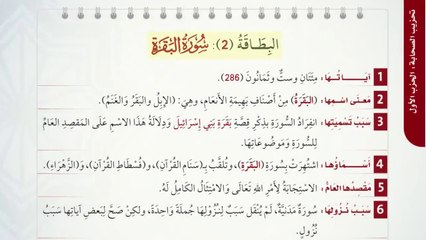 تحزيب الصحابة ، الحزب الأول
البِطَاقَةُ (2): سُورَةُ البَقَرَةِ
1 آيَاتُهَا: مِئَتَانِ وَسِتٌّ وَثَمَانُونَ (286).
2 مَعنَى اسْمِها: (البَقَرَةُ) مِنْ أَصْنَافِ بَهِيمَةِ الْأَنْعَامِ، وهِيَ: (الإِبِلُ والبَقَرُ والغَنَمُ).
3 سَبَبُ تَسْمِيَتِها: انْفِرَادُ السُّورَةِ بِذِكْرِ قِصَّةِ بَقَرَةِ بَنِي إِسْرَائِيلَ وَدِلَالَةُ هَذَا الاسْمِ عَلَى المَقْصِدِ العَامِّ
لِلسُّورَةِ وَمَوضُوعَاتِهَا.
4 أَسْمَاؤُها: اشْتُهِرَتْ بِسُورَةِ (البَقَرَةِ)، وتُلقَّبُ بِـ(سَنَامِ القُرْآنِ)، و(فُسْطَاطِ القُرْآنِ)، و(الزَّهْرَاءِ).
5 مَقْصِدُها العَامُّ: الاسْتِجَابَةُ لِأَمْرِ اللهِ تَعَالَى وَالامْتِثَالُ الكَامِلُ لَهُ.
6 سَبَبُ نُزُولِهَا: سُورَةٌ مَدَنِيَّةٌ، لَمْ يُنْقَل سَبَبٌ لِنُزُوْلِهَا جُملَةً وَاحِدَةً، ولكِنْ صَحَّ لِبَعضِ آيَاتِها سَبَبُ
نُزُولٍ.